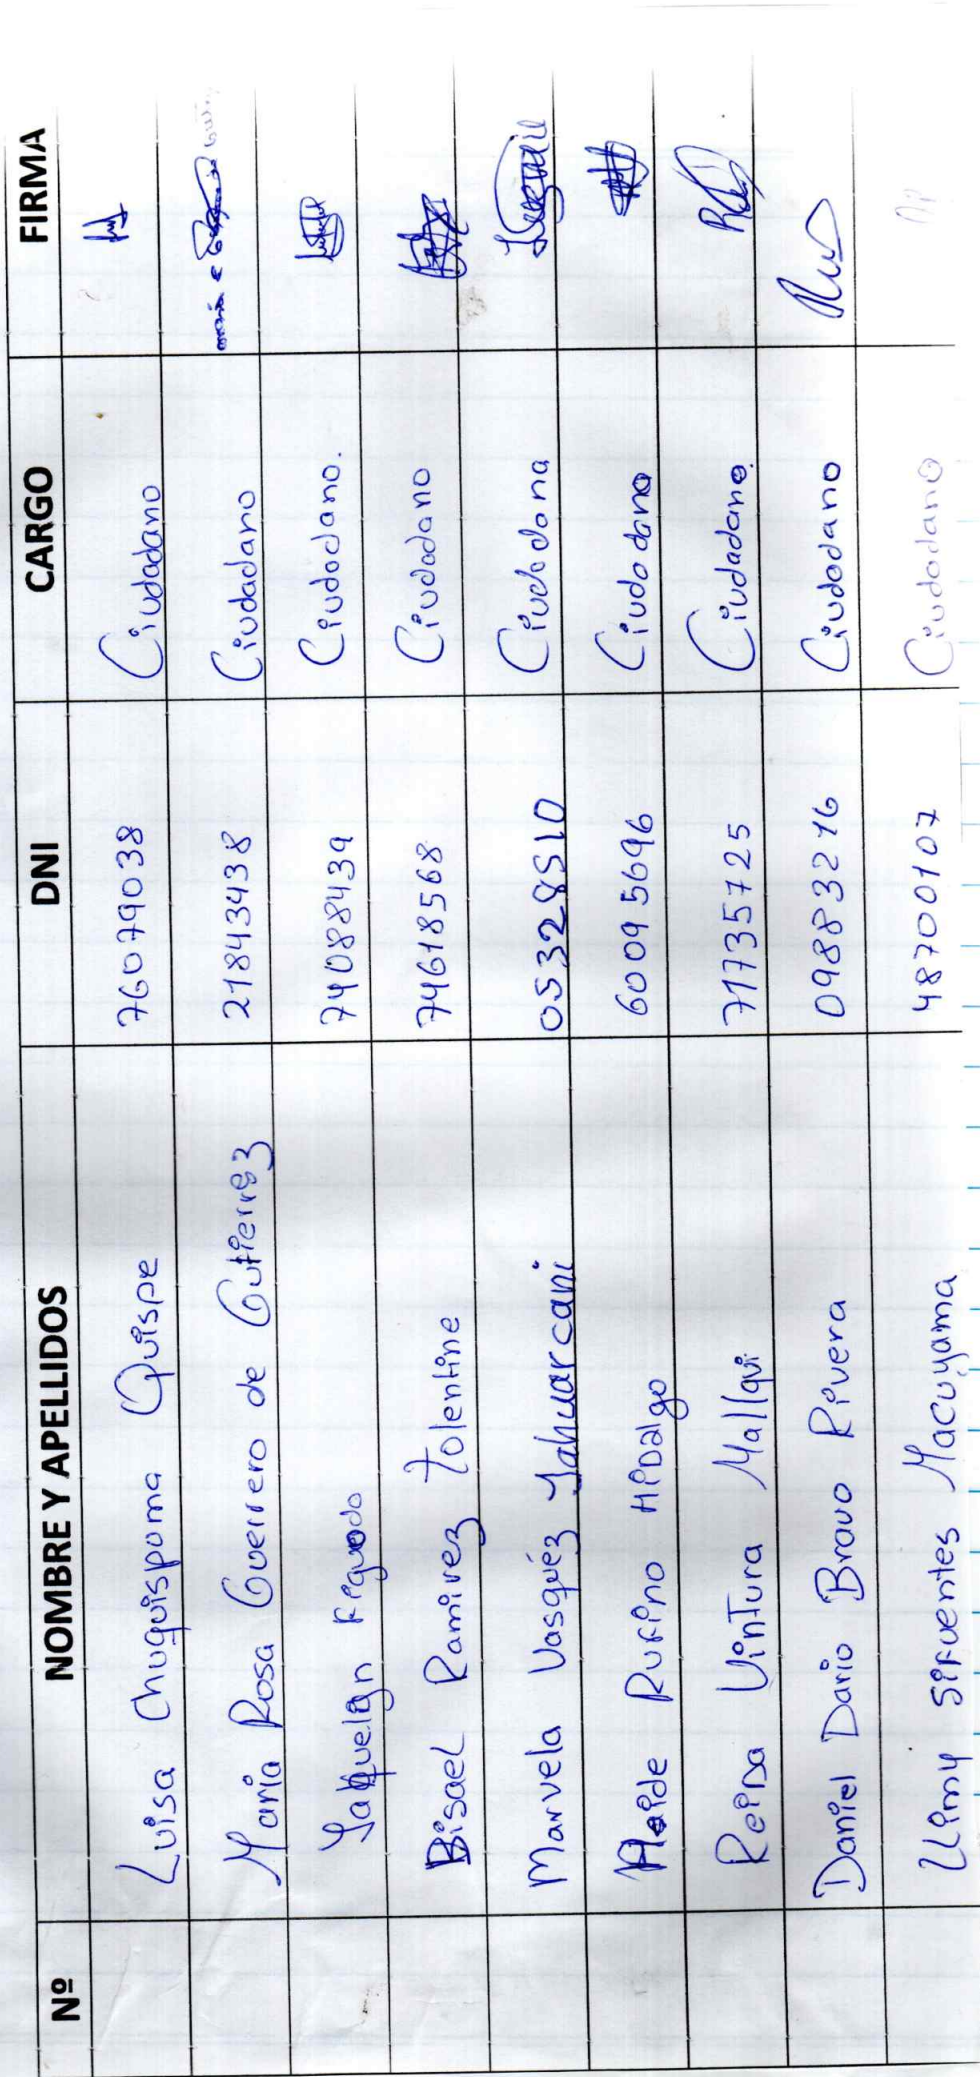 Nº NOMBRE Y APELLIDOS DNI CARGO FIRMA
Luisa Chuquispuma Quispe 76079038 Ciudadano
Maria Rosa Guerrero de Gutierrez 21843438 Ciudadano
Jaquelyn 74088439 Ciudadano.
Bisael Ramirez Tolentine 74618568 Ciudadano
Marvela Vasquéz Jahuarcani 05328510 Ciudadana
Haide Rufino Hidalgo 60095696 Ciudadano
Reida Vintura Mallqui 71735725 Ciudadano.
Daniel Dario Bravo Rivera 09883216 Ciudadano
Llimy Sifuentes Macuyama 48700107 Ciudadano